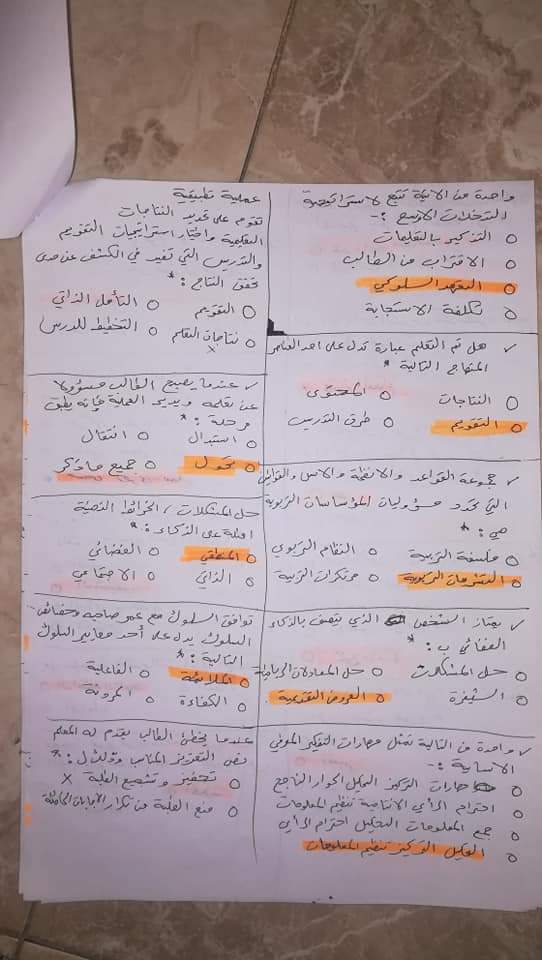 واحدة من الآتية تتبع لاستراتيجية
التدخلات الأوسع :-
التذكير بالتعليمات
الاقتراب من الطالب
التعهد السلوكي
تكلفة الاستجابة
✓ هل تم التعليم عبارة تدل على احد العناصر
المنهاج التالية *
النتاجات
المحتوى
التقويم
طرق التدريس
✓ مجموعة القواعد والانظمة والاسس والقوانين
التي تحدد مسؤوليات المؤسسات التربوية
هي : *
فلسفة التربية
النظام التربوي
التشريعات التربوية
مرتكزات التربية
✓ يمتاز الشخص الذي يتصف بالذكاء
الفضائي ب : *
حل المشكلات
حل المعادلات الرياضية
الشيفرة
العروض التقديمية
✓ واحدة من التالية تمثل مهارات التفكير المعرفي
الأساسية :-
مهارات التركيز التحليل الحوار الناجح
احترام الرأي الانتاجية تنظيم المعلومات
جمع المعلومات التحليل احترام الرأي
التحليل التركيز تنظيم المعلومات
عملية تطبيقية
تقوم على تحديد النتاجات
التعليمية واختيار استراتيجيات التقويم
والتدريس التي تفيد في الكشف عن مدى
تحقق النتاج : *
التقويم
التأمل الذاتي
نتاجات التعلم
x
التخطيط للدرس
✓ عندما يصبح الطالب مسؤولا
عن تعلمه ويدير العملية فإنه يطبق
مرحلة : *
استبدال
انتقال
تحول
جميع ما ذكر
حل المشكلات / الخرائط الذهنية
امثلة على الذكاء : *
المنطقي
الفضائي
الذاتي
الاجتماعي
توافق السلوك مع عمر صاحبه وخصائص
السلوك يدل على أحد معايير السلوك
التالية : *
الملائمة
الفاعلية
الكفاءة
المرونة
عندما يخطئ الطالب يقدم له المعلم
نص التعزيز المناسب وذلك ل : *
تحفيز وتشجيع الطلبة x
منع الطلبة من تكرار الاجابات الخاطئة